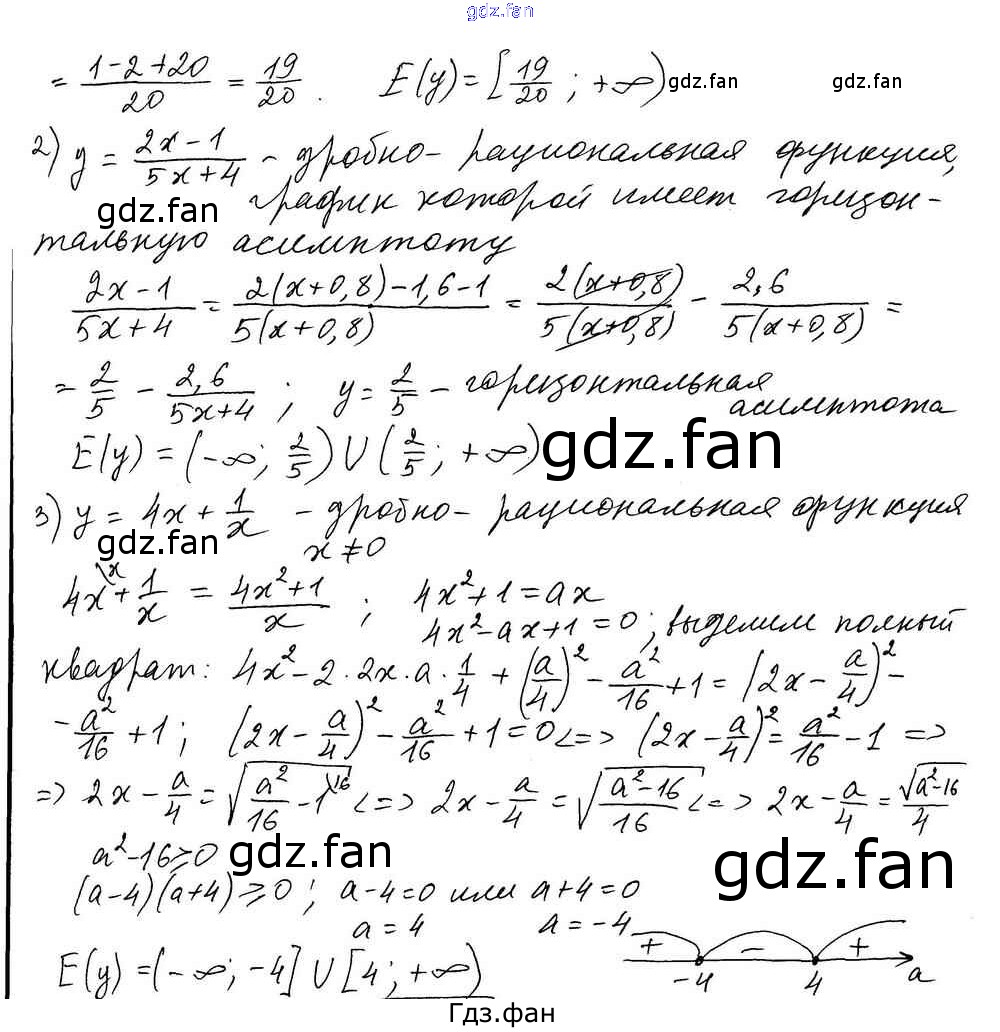 gdz.fan
= (1-2+20)/20 = 19/20. E(y)=[19/20; +∞) gdz.fan gdz.fan
2) y = (2x-1)/(5x+4) - дробно-рациональная функция,
gdz.fan график которой имеет горизон-
тальную асимптоту
(2x-1)/(5x+4) = (2(x+0,8)-1,6-1)/(5(x+0,8)) = (2(x+0,8))/(5(x+0,8)) - 2,6/(5(x+0,8)) =
= 2/5 - 2,6/(5x+4); y=2/5 - горизонтальная
асимптота
E(y)=(-∞; 2/5)∪(2/5; +∞) gdz.fan
3) y=4x+1/x - дробно-рациональная функция
gdz.fan x≠0
4x\x + 1/x = (4x²+1)/x; 4x²+1=ax
4x²-ax+1=0; выделим полный
квадрат: 4x²-2·2x·a·1/4+(a/4)²-a²/16+1=(2x-a/4)²-
-a²/16+1; (2x-a/4)²-a²/16+1=0<=>(2x-a/4)²=a²/16-1 =>
=> 2x-a/4=√(a²/16-1\16) <=> 2x-a/4=√((a²-16)/16) <=> 2x-a/4=√(a²-16)/4
a²-16≥0 gdz.fan gdz.fan
(a-4)(a+4)≥0; a-4=0 или a+4=0
a=4 a=-4
+ - +
E(y)=(-∞; -4]∪[4; +∞) -4 4 a
Гдз.фан